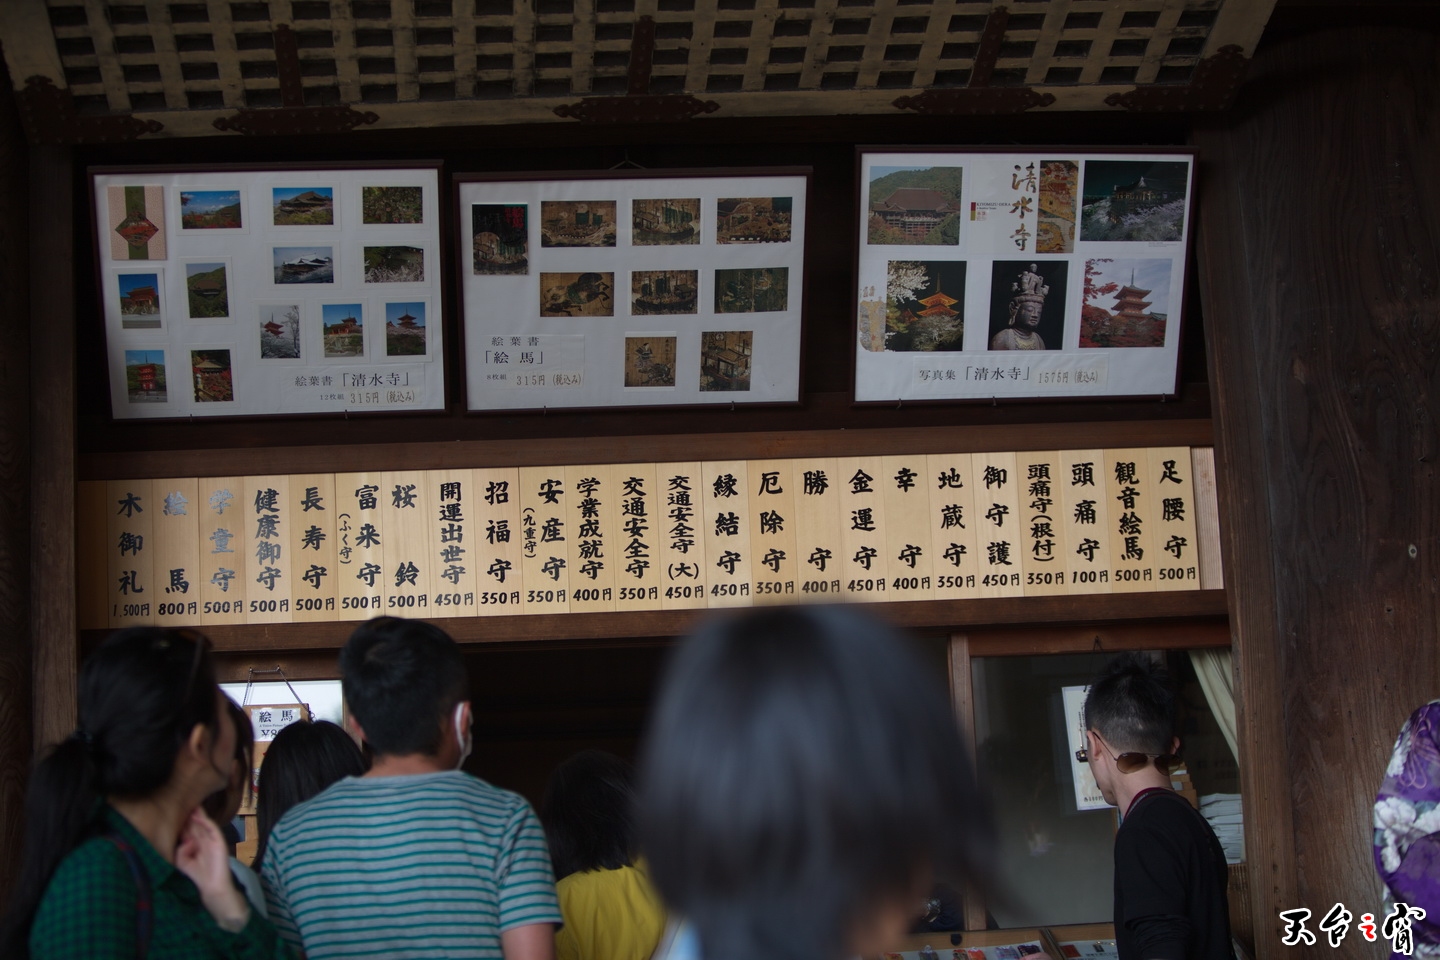 絵葉書「清水寺」
12枚組 315円(税込み)
絵葉書
「絵馬」
8枚組 315円(税込み)
清水寺
写真集「清水寺」 1575円(税込み)
木御礼 1,500円
絵馬 800円
学童守 500円
健康御守 500円
長寿守 500円
富来守(ふく守) 500円
桜鈴 500円
開運出世守 450円
招福守 350円
安産守(九重守) 350円
学業成就守 400円
交通安全守 350円
交通安全守(大) 450円
縁結守 450円
厄除守 350円
勝守 400円
金運守 450円
幸守 400円
地蔵守 350円
御守護 450円
頭痛守(根付) 350円
頭痛守 100円
観音絵馬 500円
足腰守 500円
絵馬
天台之宵